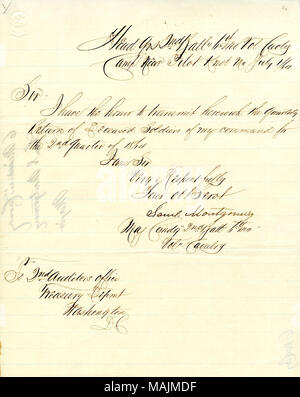 Head Qrs 2nd Batt 1st Mo Vol Cavly
Camp Near Pilot Knob Mo July 1/64
Sir
I have the honor to transmit herewith the Quarterly
Return of Deceased Soldiers of my command for
the 2nd Quarter of 1864
I am Sir
Very Respectfully
Your obt Servt
Saml Montgomery
Maj Comdg 2nd Batt
Vols Cavalry
To 2nd Auditors office
Treasury Depmt
Washington
D.C.
alamy
Image ID: MAJMDF
www.alamy.com